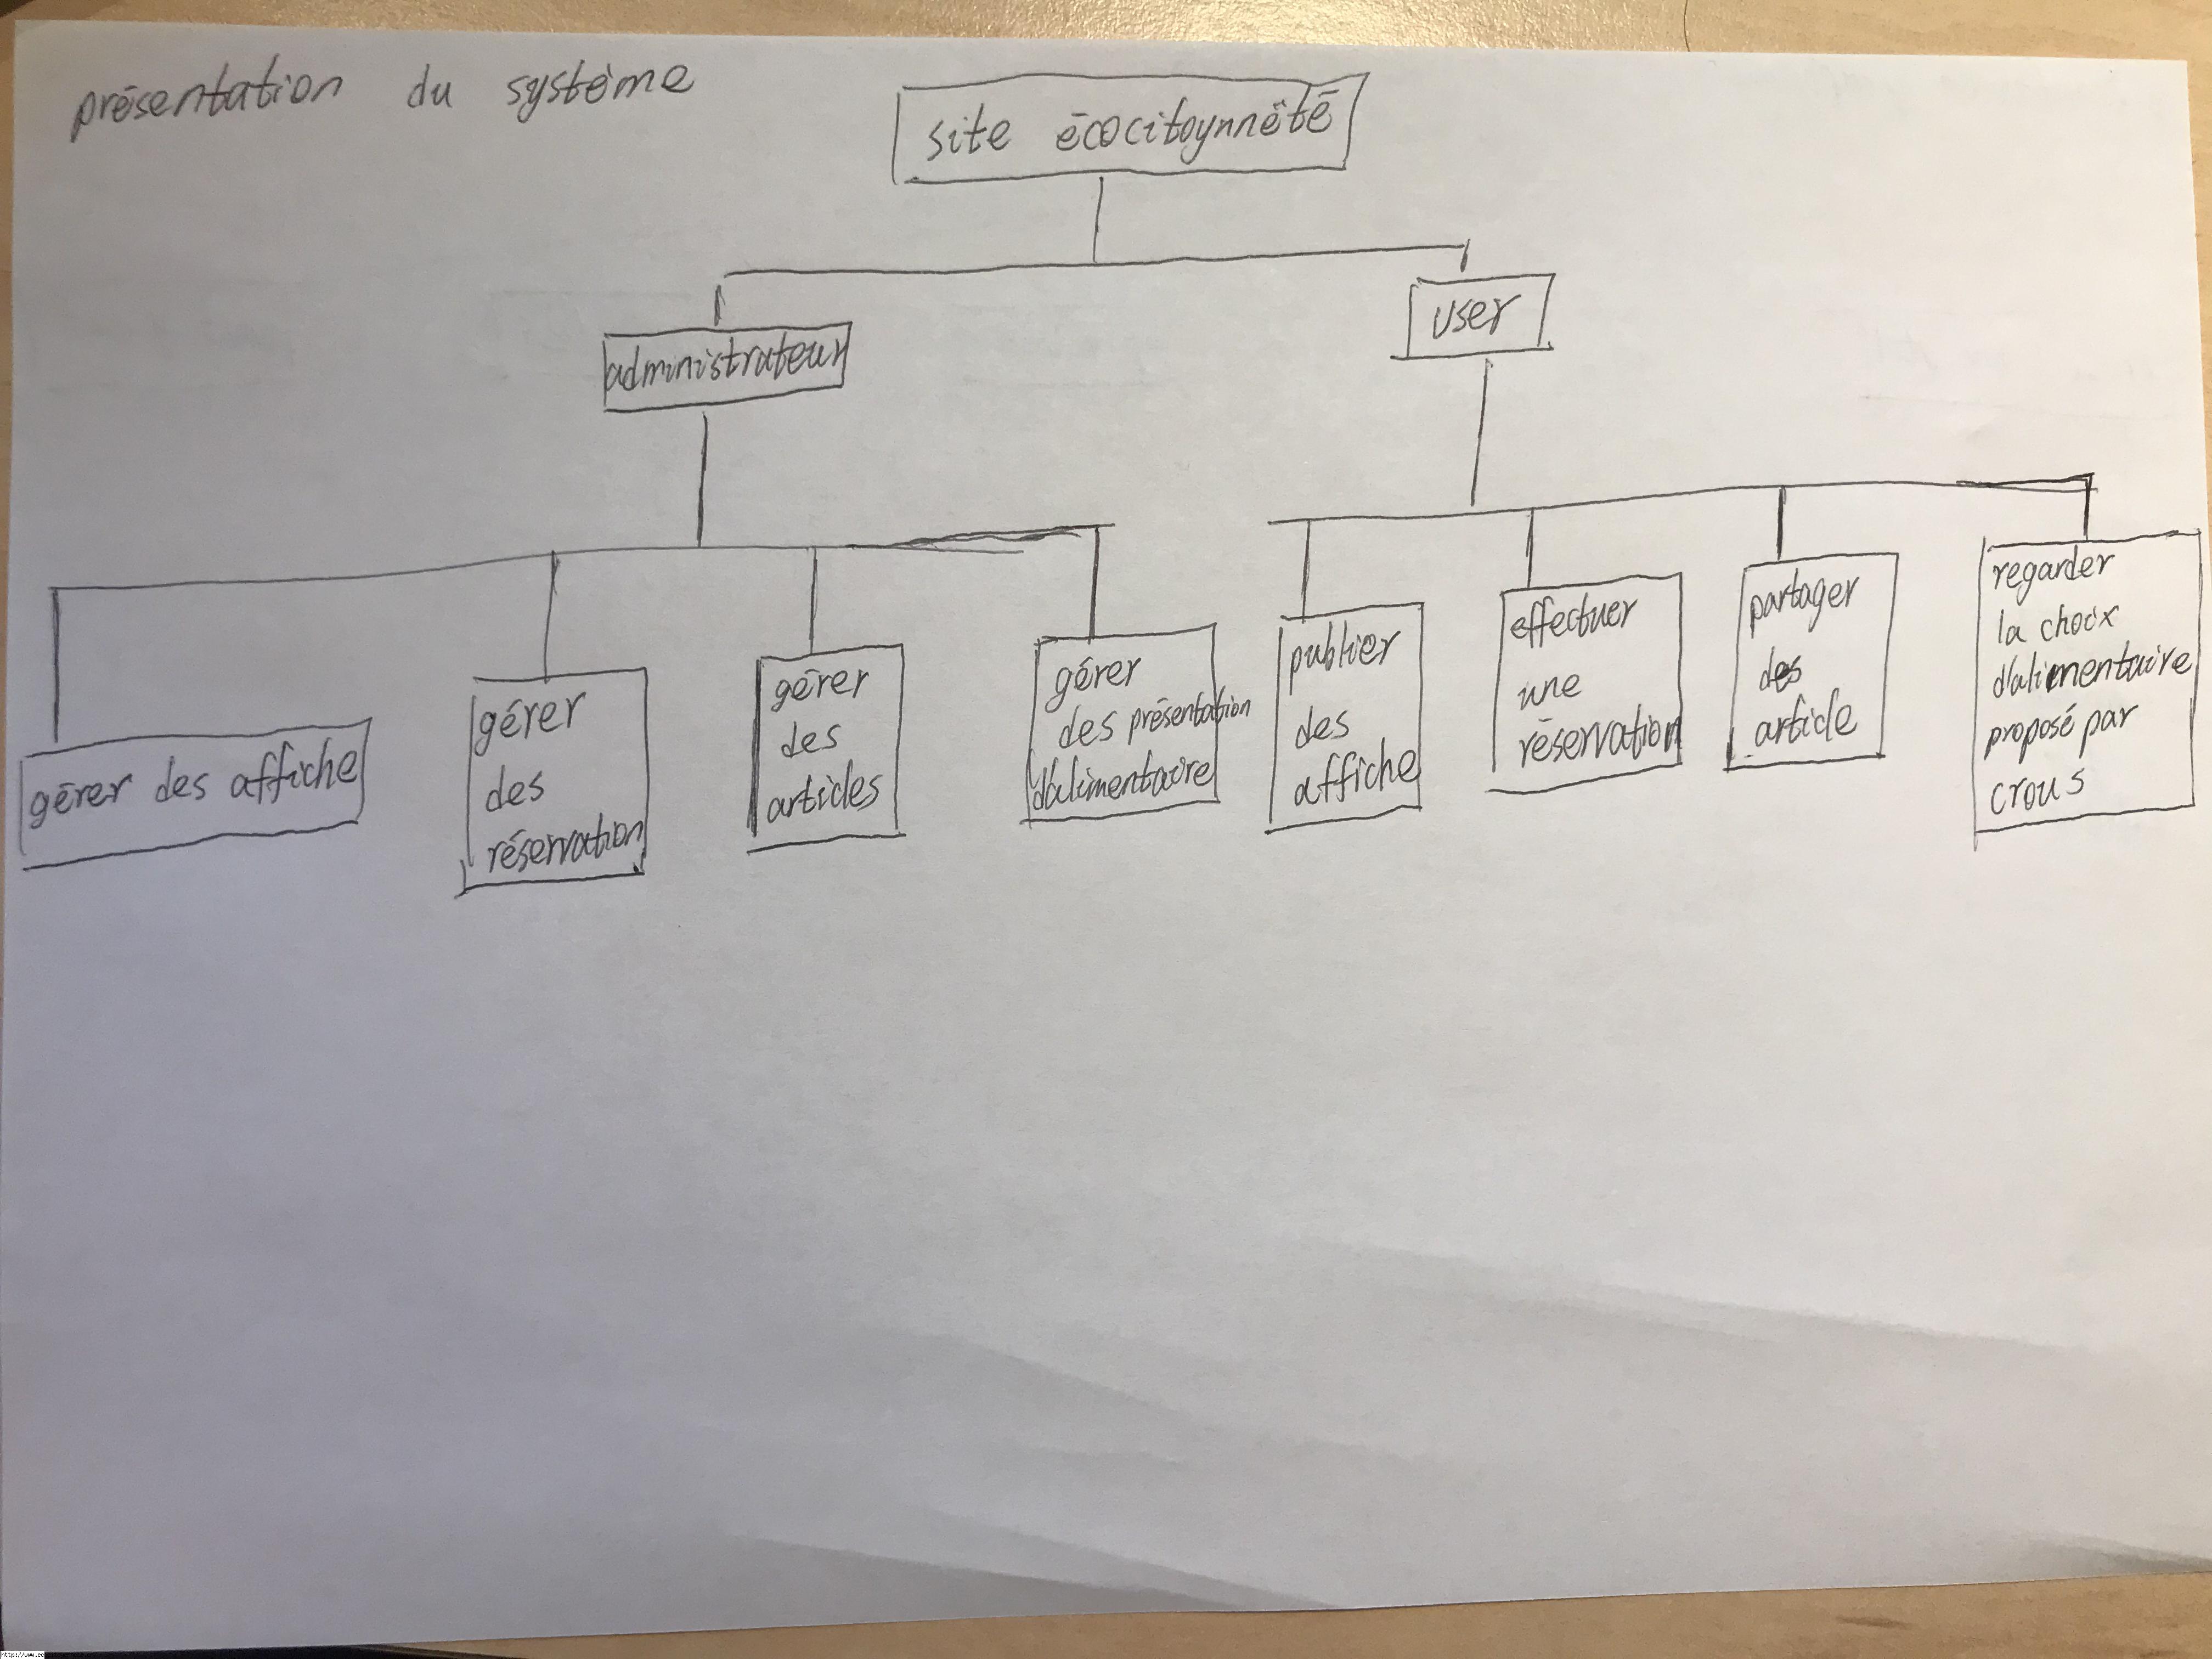 présentation du système
site écocitoynnêté
administrateur
user
gérer des affiche
gérer
des
réservation
gérer
des
articles
gérer
des présentation
d'alimentaire
publier
des
affiche
effectuer
une
réservation
partager
des
article
regarder
la choix
d'alimentaire
proposé par
crous
http://www.ec